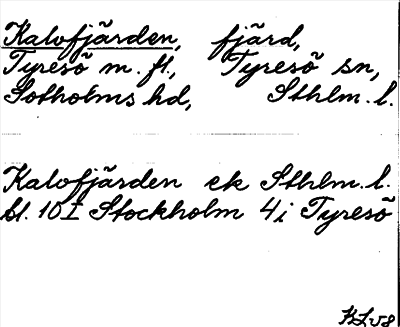 Kalvfjärden, fjärd,
Tyresö m. fl., Tyresö sn,
Sotholms hd, Sthlm. l.
Kalvfjärden ek Sthlm. l.
bl. 10 I Stockholm 4i Tyresö